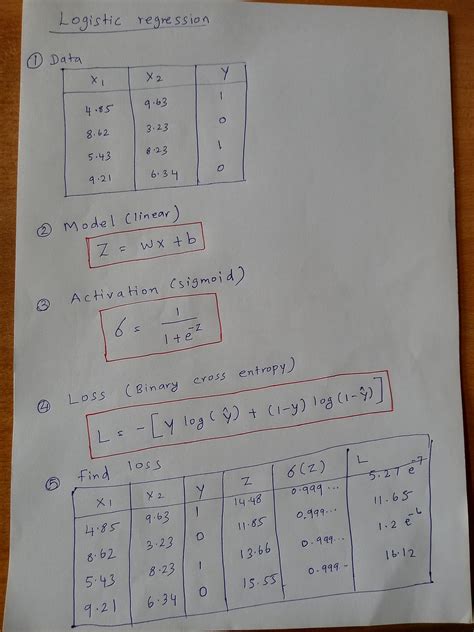 Logistic regression
① Data
x₁ x₂ y
4.85 9.63 1
8.62 3.23 0
5.43 8.23 1
9.21 6.34 0
② Model (linear)
Z = wx + b
③ Activation (sigmoid)
σ = 1 / (1 + e^-z)
④ Loss (Binary cross entropy)
L = -[y log(ŷ) + (1-y) log(1-ŷ)]
⑤ find loss
x₁ x₂ y Z σ(Z) L
4.85 9.63 1 14.48 0.999... 5.27 e^-7
8.62 3.23 0 11.85 0.999... 11.65
5.43 8.23 1 13.66 0.999... 1.2 e^-6
9.21 6.34 0 15.55 0.999- 16.12